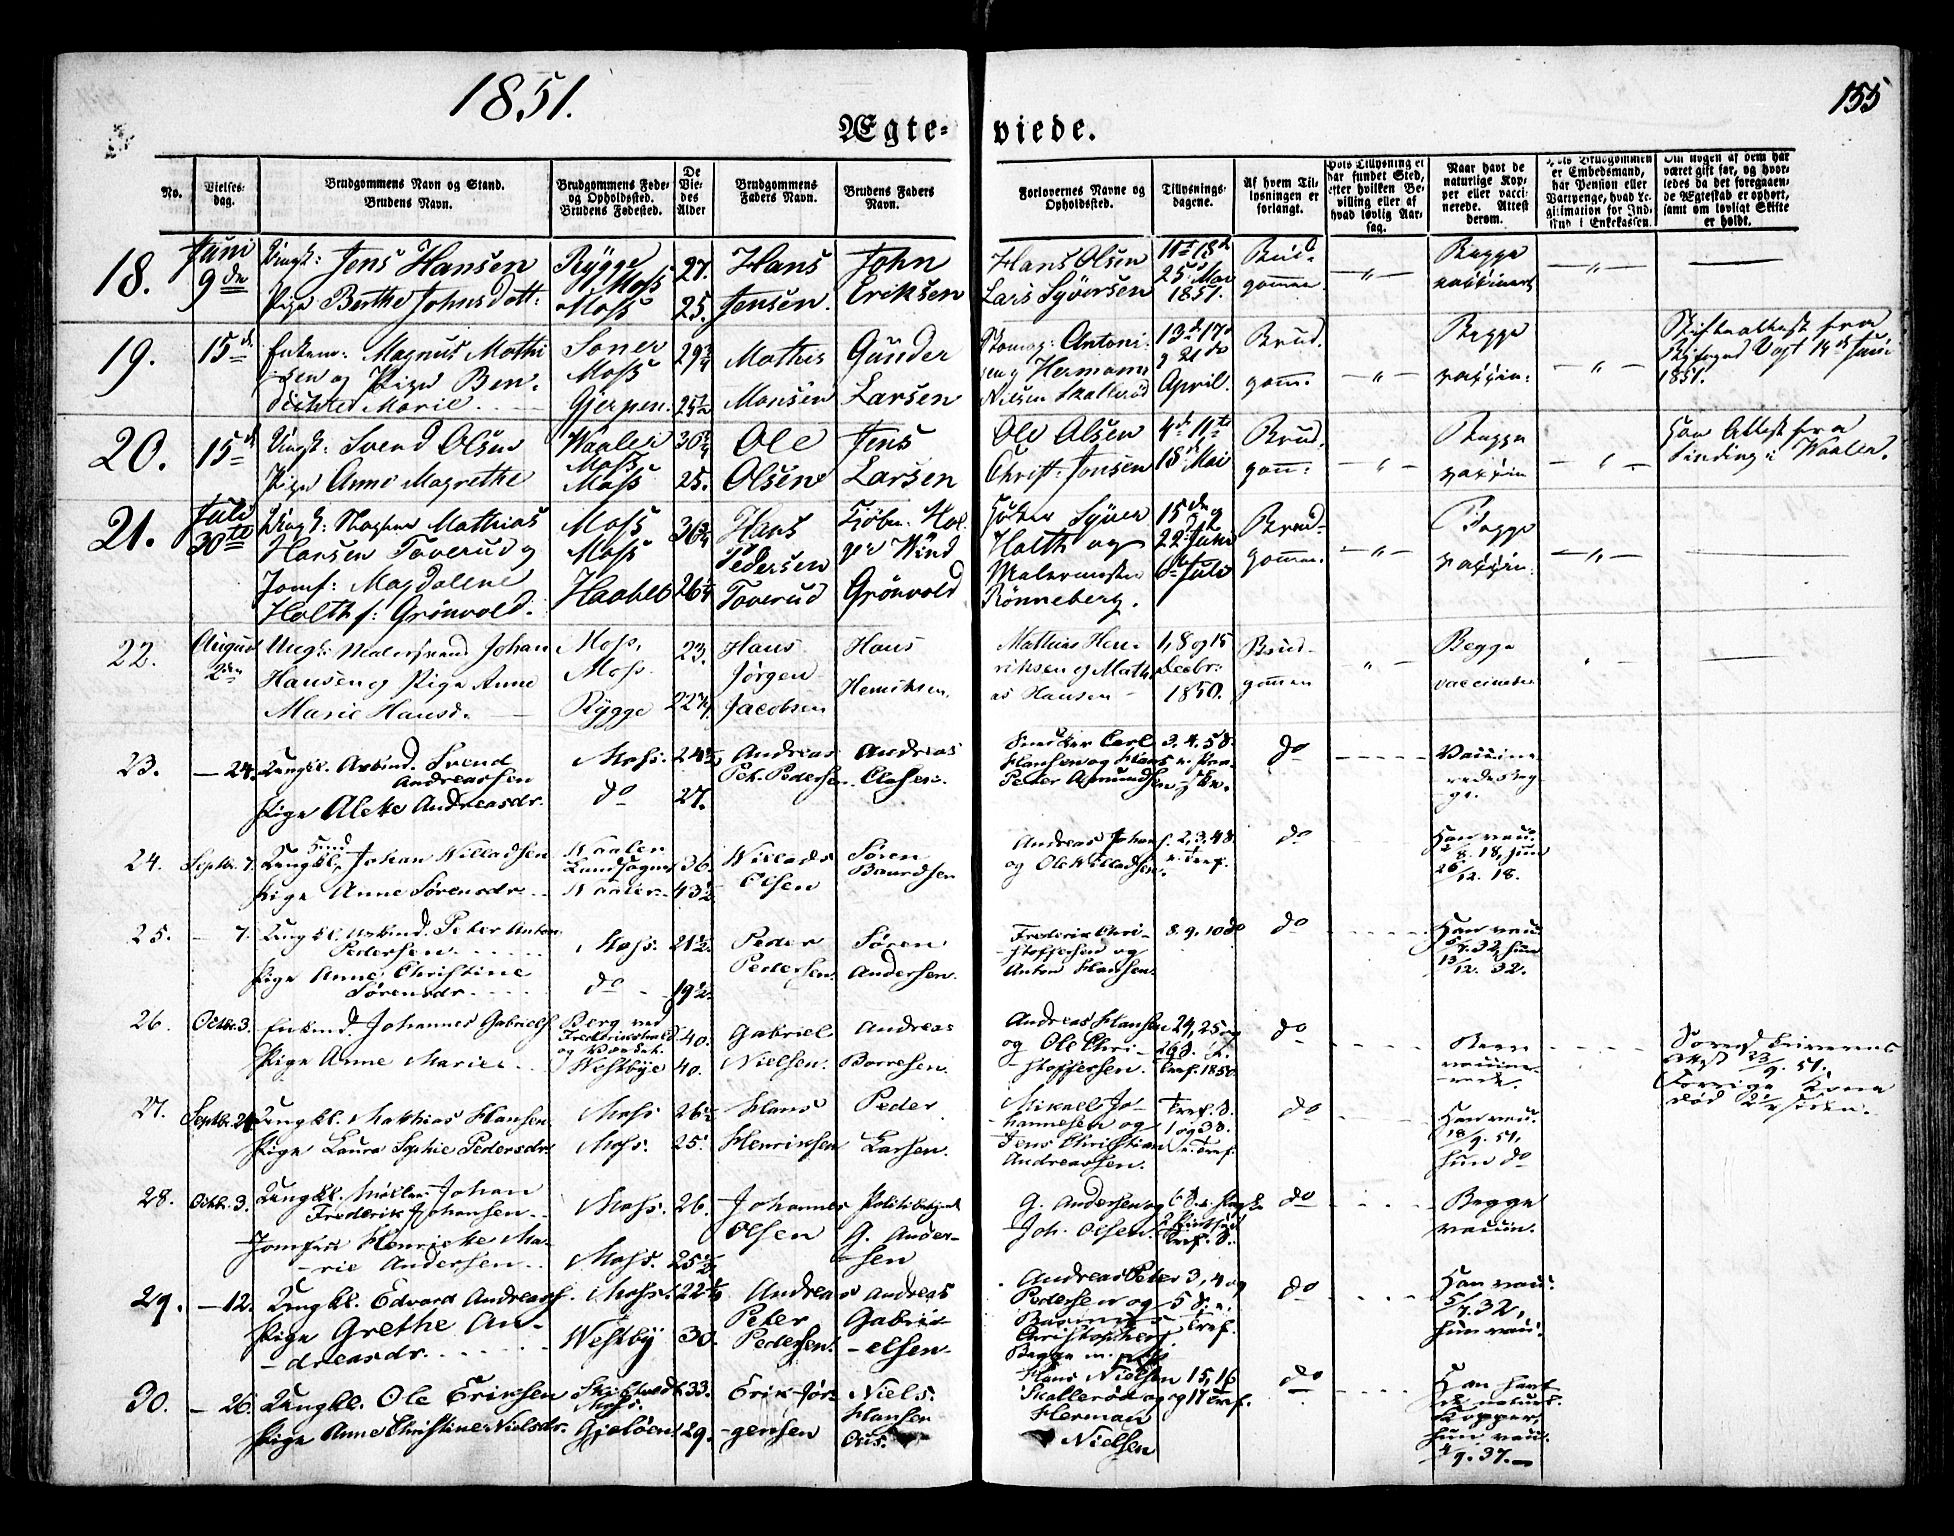 1851.
155
Ægte-
viede.
No.
Vielses-
dag.
Brudgommens Navn og Stand.
Brudens Navn.
Brudgommens Føde-
og Opholdssted.
Brudens Fødested.
De
Vie-
des
Alder
Brudgommens
Faders Navn.
Brudens Faders
Navn.
Forlovernes Navne og
Opholdssted.
Tillysnings-
dagene.
Af hvem Til-
lysningen er
forlangt.
Hvis Tillysning ei
har fundet Sted,
efter hvilken Be-
villing eller af
hvad lovlig Aar-
sag.
Naar havt de
naturlige Kop-
per eller vacci-
nerede. Attest
derom.
Hvis Brudgommen
er Embedsmand,
har Pension eller
Vartpenge, hvad Le-
gitimation for Ind-
skud i Enkekassen.
Om nogen af dem har
været gift før, og hvor-
ledes da det foregaaen-
de Ægteskab er ophørt,
samt om lovligt Skifte
er holdt.
18.
Juni
9de
Ungk: Jens Hansen
Pige Berthe Johnsdatt:
Rygge
Moss
Moss
27.
25.
Hans
Jensen.
John
Eriksen
Hans Olsen
Lars Syversen
11te 18de
25 Mai
1851.
Brud-
gommen
— " —
Begge
vaccineret
— " —
19.
15de
Enkem: Magnus Mathi
sen og Pige Ben-
dichte Marie.
Soner
Moss
Gjerpen.
29 3/4
25 1/2
Mathis
Monsen
Gunder
Larsen
Skomag: Antoni
sen og Hermann
Nielsen Skallerød
13de 17de
og 21de
April.
Brud-
gom:
— " —
Begge
vaccin:
— " —
Skifteattest fra
Byfoged Vogt 14de Juni
1851.
20.
15de
Ungk: Svend Olsen
Pige Anne Magrethe
Waaler
Moss
Moss
30 3/4
25.
Ole
Olsen
Jens
Larsen
Ole Olsen
Christ: Jonsen
4de 11te
18de Mai
Brud-
gom:
— " —
Begge
vaccin
— " —
Han Attest fra
Sinding i Waaler.
21.
Juli
30te
Ungk: Mathias
Hansen Toverud og
Jomf: Magdalene
Holth f: Grönvold.
Moss
Moss
Haabel
36 3/4
26 1/4
Hans
Pedersen
Toverud
Kjöbm: Hol
ger Wind
Grönvold
Syver
Holth og
Malermester
Rönneberg.
15de og
22 Juni
6te Juli
Brud-
gommen.
— " —
Begge
vaccin:
— " —
22.
August
2den
Ungk: Malersvend Johan
Hansen og Pige Anne
Marie Hansd.
Moss,
Moss.
Rygge
23.
22 3/4.
Hans
Jørgen
Jacobsen
Hans
Henriksen.
Mathias Hen-
riksen og Mathi
as Hansen
1, 8 og 15
Decbr:
1850.
Brud-
gommen
" —
Begge
vaccinerede
23.
— 24.
Ungkl. Arbmd. Svend
Andreassen
Pige Aleke Andreasdr.
Moss.
do
24 1/2
27.
Andreas
Pet. Pedersen
Andreas
Clasen.
Snedker Carl
Hansen og Hans
Peder Asmundsen
3. 4. 5 S.
do
Vaccine-
rede Beg-
ge.
24.
Septbr. 7.
Ungkl. Johan Nilladsen
Pige Anne Sørensdr.
Waaler
Landsogn
Waaler.
36.
43 1/2
Nillads
Olsen
Søren
Baardsen
Andreas Johans.
og Ole Nilladsen.
2, 3, 4 S.
e. Tref.
do
Han vacc.
2/8. 18, hun
26/12. 18.
25.
— 7.
Ungkl. Arbmd. Peter Anton
Pedersen
Pige Anne Christine
Sørensdr.
Moss.
do
21 1/2
19 1/2
Peder
Pedersen.
Søren
Andersen.
Frederik Chri-
stoffersen og
Anton Hansen.
8. 9. 10 do
do
Han vacc.
5/7. 32, hun
13/12. 32.
26.
Octbr. 3.
Enkmd. Johannes Gabriels.
Pige Anne Marie
Berg ved
Frederikshald
Westbye
40.
40.
Gabriel
Nielsen.
Andreas
Borresen.
Andreas Hansen
og Ole Chri-
stoffersen.
24, 25 og
26 S. e.
Tref. 1850
do
Been
vaccine-
rede.
Sorenskriverens
Attest 23/9. 51.
Forrige Kone
død 2 1/2 siden.
27.
Septbr. 24
Ungkl. Mathias Hansen
Pige Laura Sophie Pedersdr.
Moss
Moss.
26 1/2
25
Hans
Henriksen
Peder
Larsen.
Mikael Jo-
hannesen og
Jens Christian
Andreassen.
Tref. S.
1 og 3 S.
e. Tref.
do
Han vacc.
18/9. 51,
hun do
28.
Octbr. 3.
Ungkl. Møller Johan
Frederik Johansen
Jomfru Henrikke Ma-
rie Andersen
Moss.
Moss.
26.
25 1/2
Johannes
Olsen
Politibetjent
G. Ander-
sen
G. Andersen og
Joh. Olsen
do
Begge
vaccin.
29.
— 12.
Ungkl. Edvard Andreass.
Pige Grethe An-
dreasdr.
Moss.
Westby
22 1/2
30.
Andreas
Peter
Pedersen.
Andreas
Gabri-
elsen
Andreas Peter
Pedersen og
Christophers.
Begge i Moss
3, 4 og
5 S. e.
Tref.
do
Han vacc.
5/7. 32,
hun vacc.
30.
— 26.
Ungkl. Ole Eriksen
Pige Anne Christine Nielsdr.
Moss.
Gjeløen
33.
29.
Erik Jør-
gensen
Niels
Hansen
Oris.
Hans Nielsen
Skallerød og
Herman
Nielsen
15, 16
og 17 Tref.
do
Han havt
de naturl.
Kopper,
hun vacc.
4/9. 37.